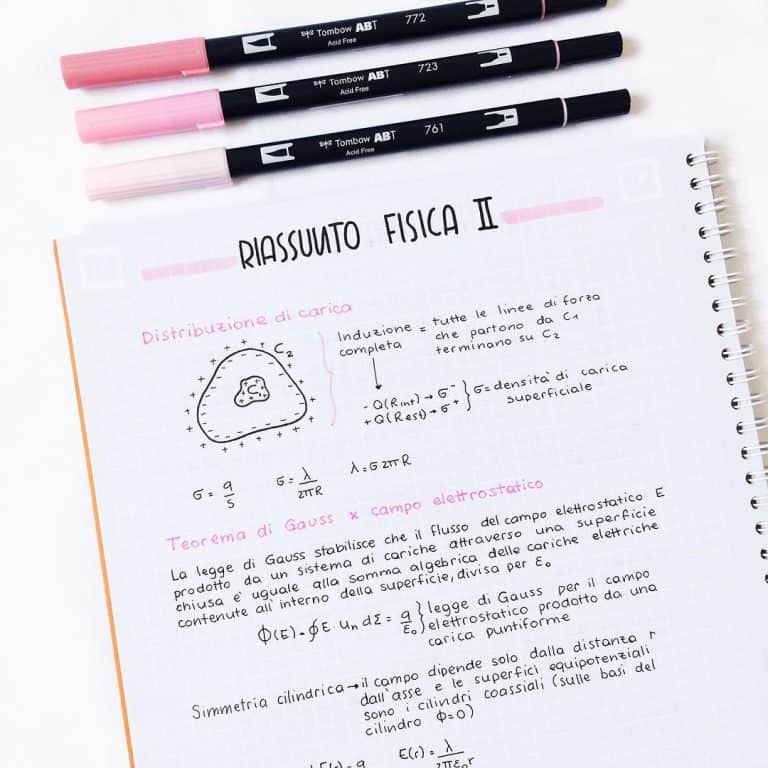 Tombow ABT 772
Acid Free
Tombow ABT 723
Acid Free
Tombow ABT 761
Acid Free
RIASSUNTO FISICA II
Distribuzione di carica
C₂
C₁
Induzione completa = tutte le linee di forza
che partono da C₁
terminano su C₂
- Q(Rint) → σ⁻
+ Q(Rest) → σ⁺
σ = densità di carica
superficiale
σ = q/S σ = λ/2πR λ = σ2πR
Teorema di Gauss x campo elettrostatico
La legge di Gauss stabilisce che il flusso del campo elettrostatico E
prodotto da un sistema di cariche attraverso una superficie
chiusa e' uguale alla somma algebrica delle cariche elettriche
contenute all'interno della superficie, divisa per ε₀
Φ(E) = ∮E · Un dΣ = q/ε₀
legge di Gauss per il campo
elettrostatico prodotto da una
carica puntiforme
Simmetria cilindrica → il campo dipende solo dalla distanza r
dall'asse e le superfici equipotenziali
sono i cilindri coassiali (sulle basi del
cilindro Φ=0)
E(r) = λ/2πε₀r